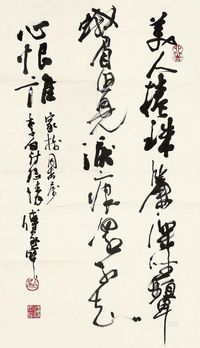 美人捲珠簾深坐顰
蛾眉但見淚痕濕不知
心恨誰
李白詩怨情